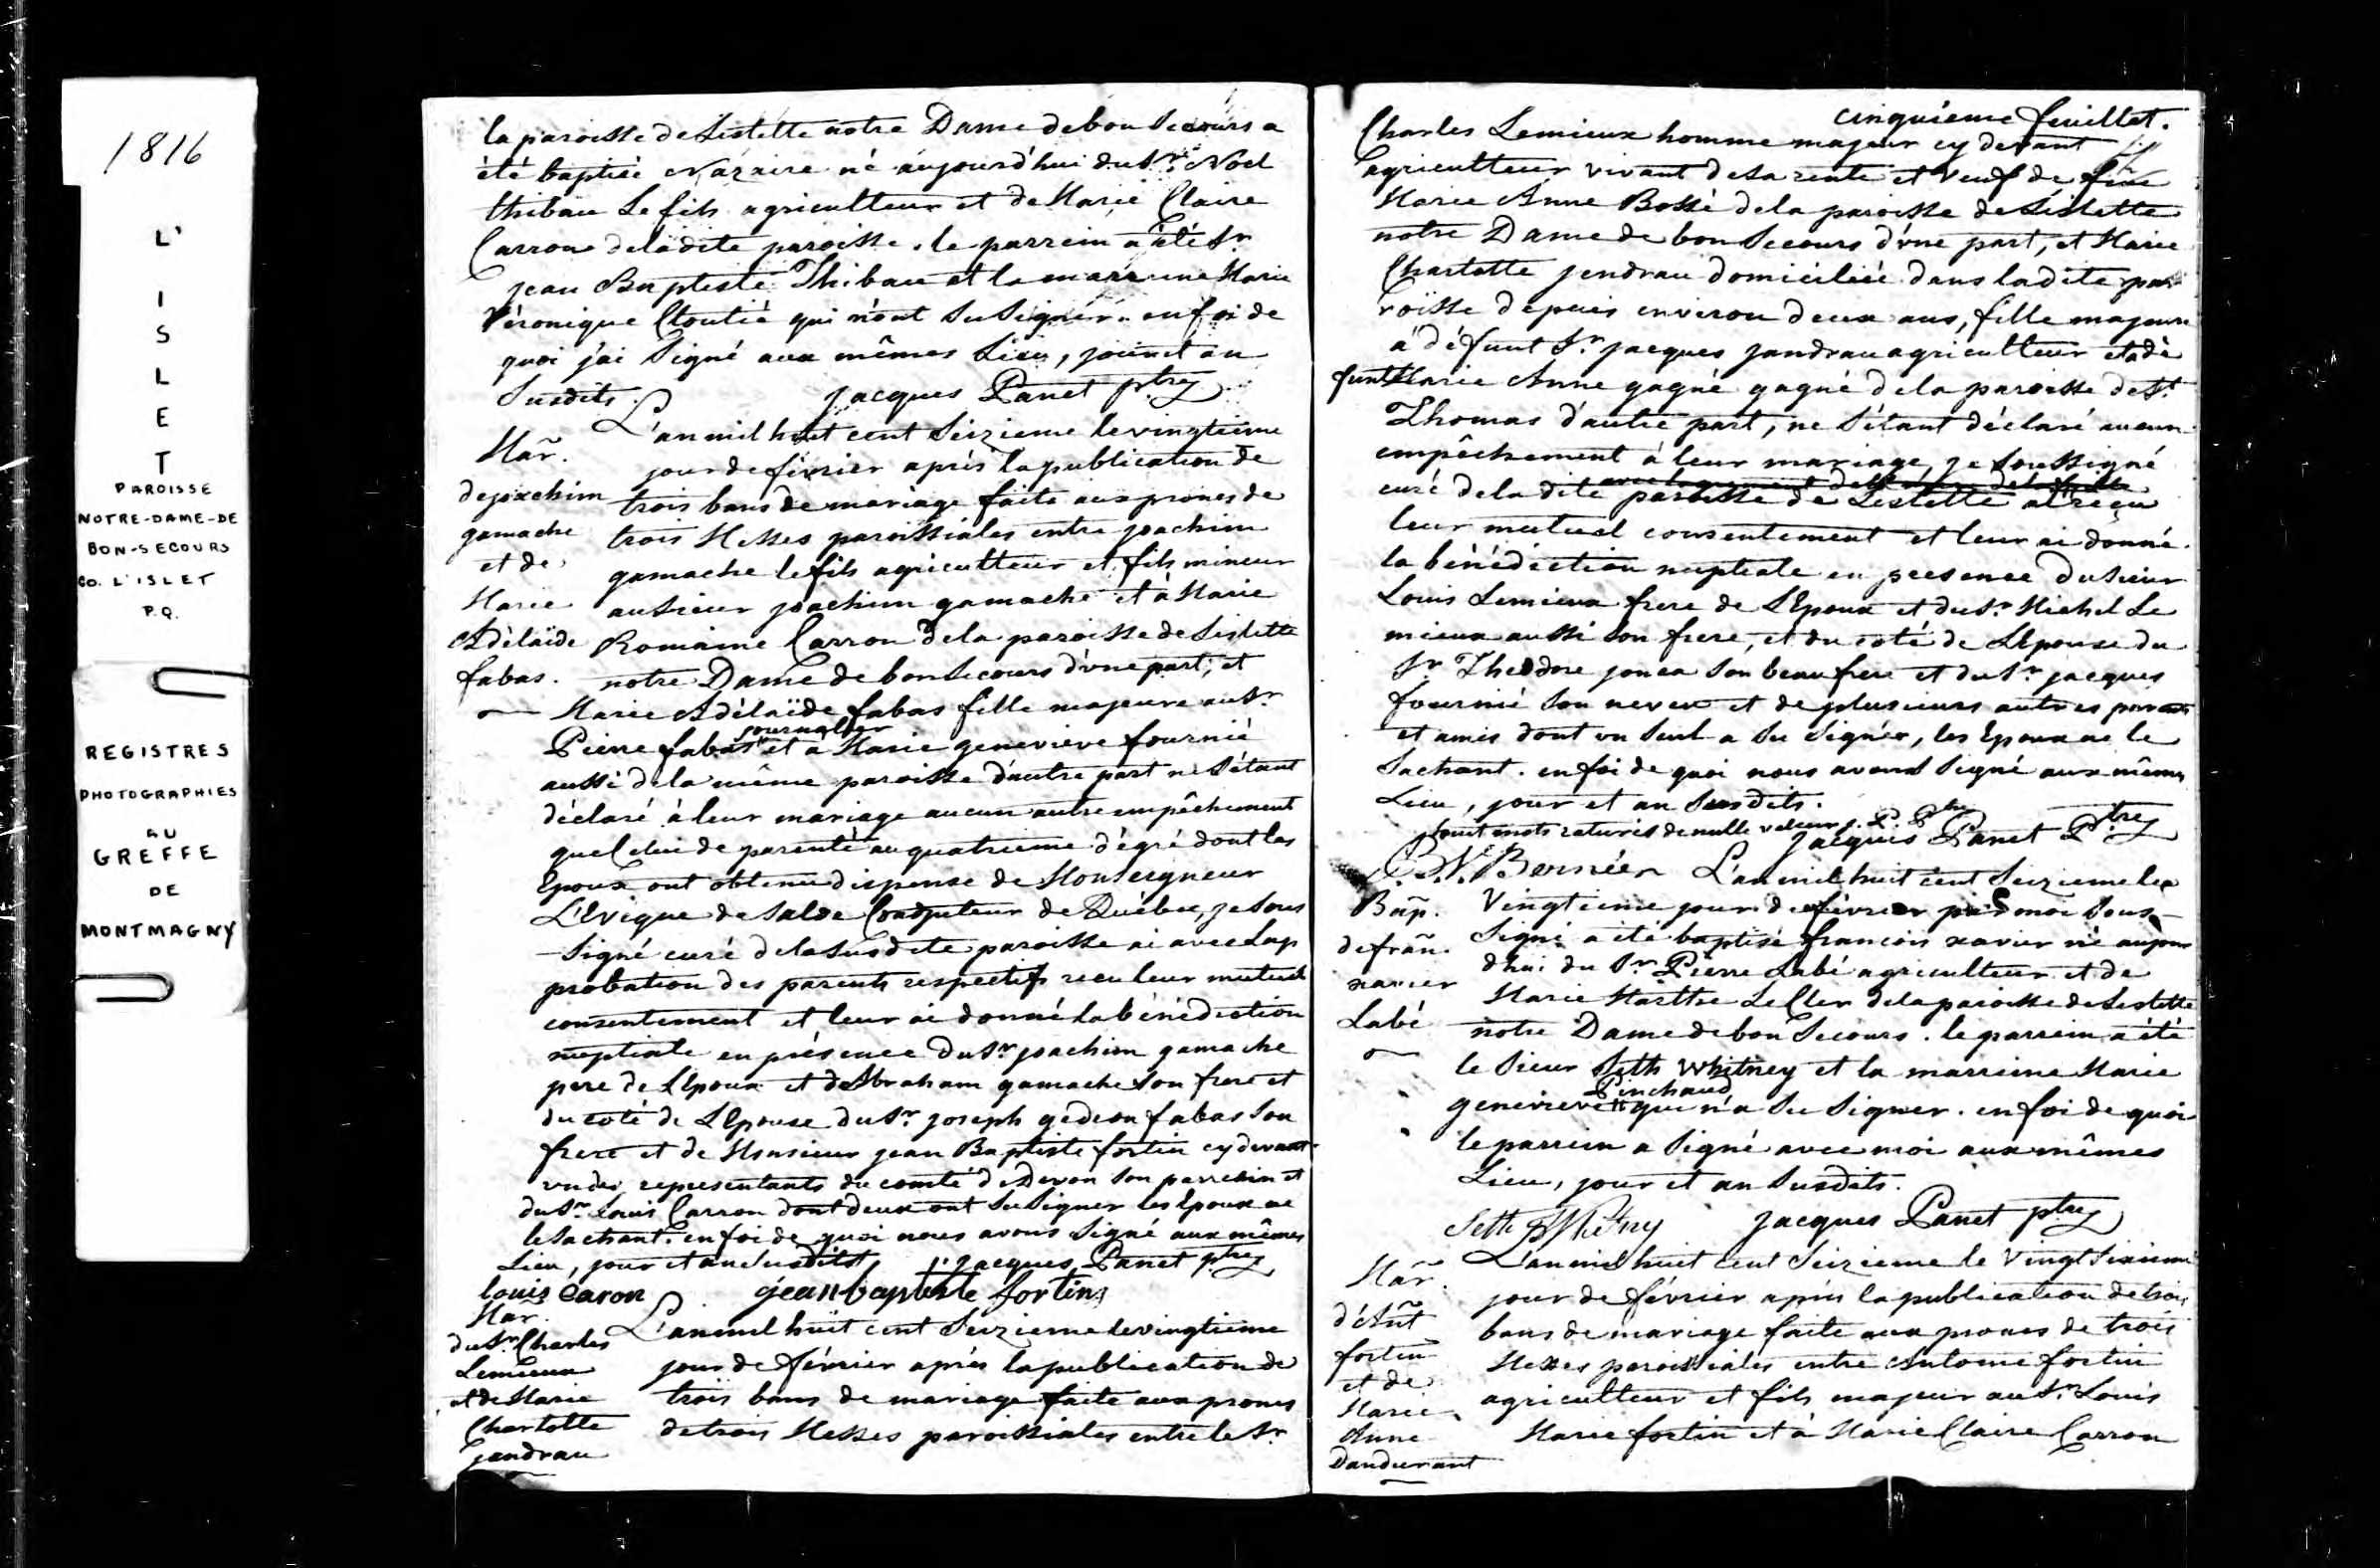 1816
L'
I
S
L
E
T
PAROISSE
NOTRE-DAME-DE
BON-SECOURS
CO. L'ISLET
P.Q.
REGISTRES
PHOTOGRAPHIES
AU
GREFFE
DE
MONTMAGNY
la paroisse de Lislette notre Dame de bon Secours a
été baptisé Nazaire né aujourd'hui du Sr. Noel
thibau le fils agriculteur et de Marie Claire
Carron de la dite paroisse. le parrein a été Sr
jean Baptiste Thibau et la marreine Marie
Véronique Cloutié qui n'ont Su Signer. en foi de
quoi j'ai Signé aux mêmes Lieu, jour et an
Susdits. jacques Panet ptre
Mar.
de joachim
gamache
et de
Marie
Adélaïde
fabas.
L'an mil huit cent Seizieme le vingtieme
jour de février après la publication de
trois bans de mariage faite aux prones de
trois Messes paroissiales entre joachim
gamache le fils agriculteur et fils mineur
au Sieur joachim gamache et à Marie
Romaine Carron de la paroisse de Lislette
notre Dame de bon Secours d'vne part, et
Marie Adélaïde fabas fille majeure au Sr
journallier
Pierre fabas et à Marie genevieve fournié
aussi de la même paroisse d'autre part ne S'étant
déclaré à leur mariage aucun autre empêchement
que Celui de parenté au quatrieme dégré dont les
Epoux ont obtenu dispense de Monseigneur
L'Evêque de Salde Coadjuteur de Québec, je Sous
-Signé curé de la Susdite paroisse ai avec Lap
probation des parents respectifs recu leur mutuel
consentement et leur ai donné la bénédiction
nuptiale en présence du Sr. joachim gamache
pere de L'Epoux et d'Abraham gamache Son frere et
du coté de L'Epouse du Sr. joseph gedeon fabas Son
frere et de Monsieur jean Baptiste fortin cy devant
vn des representants du comté de Devon Son parrein et
du Sr. Louis Carron dont deux ont Su Signer les Epoux ne
le Sachant. en foi de quoi nous avons Signé aux mêmes
Lieu, jour et an Susdits. jacques Panet ptre
louis Caron jean baptiste fortin
Mar.
du Sr. Charles
Lemieux
et de Marie
Charlotte
Gendrau
L'an mil huit cent Seizieme le vingtieme
jour de février après la publication de
trois bans de mariage faite aux prones
de trois Messes paroissiales entre le Sr.
cinquieme feuillet.
Charles Lemieux homme majeur cy devant
agriculteur vivant de sa rente et Veuf de feue
Marie Anne Bossé de la paroisse de Lislette
notre Dame de bon Secours d'vne part, et Marie
Charlotte jendrau domiciliée dans la dite pa
roisse depuis environ deux ans, fille majeure
à défunt Sr. jacques jandrau agriculteur et à dé
funte Marie Anne gagné gagné de la paroisse de St.
Thomas d'autre part, ne S'étant déclaré aucun
empêchement à leur mariage, je Soussigné
curé de la dite paroisse de Lislette ai reçu
leur mutuel consentement et leur ai donné
la bénédiction nuptiale en presence du Sieur
Louis Lemieux frere de L'Epoux et du Sr. Michel Le
mieux aussi Son frere, et du coté de L'Epouse du
Sr. Theodore joncas Son beau frere et du Sr. jacques
fournié Son neveu et de plusieurs autres parents
et amis dont vn Seul a Su Signer, les Epoux ne le
Sachant. en foi de quoi nous avons Signé aux mêmes
Lieu, jour et an Susdits.
huit mots raturés de nulle valeur j. P. Ptre
Jacques Panet Ptre
Bernier
Bap.
de fran.
xavier
Labé
L'an mil huit cent Seizieme le
Vingtieme jour de février par moi Sous
Signé a été baptisé francois xavier né aujour
dhui du Sr. Pierre Labé agriculteur et de
Marie Marthe Le Cler de la paroisse de Lislette
notre Dame de bon Secours. le parrein a été
le Sieur Seth Whitney et la marreine Marie
Pinchaud
genevieve qui n'a Su Signer. en foi de quoi
le parrein a Signé avec moi aux mêmes
Lieu, jour et an Susdits.
Seth Whitny jacques Panet ptre
Mar.
d'Ant
fortin
et de
Marie
Anne
Dandurant
L'an mil huit cent Seizieme le Vingt Sixieme
jour de février après la publication de trois
bans de mariage faite aux prones de trois
Messes paroissiales entre Antoine fortin
agriculteur et fils majeur au Sr. Louis
Marie fortin et à Marie Claire Carron